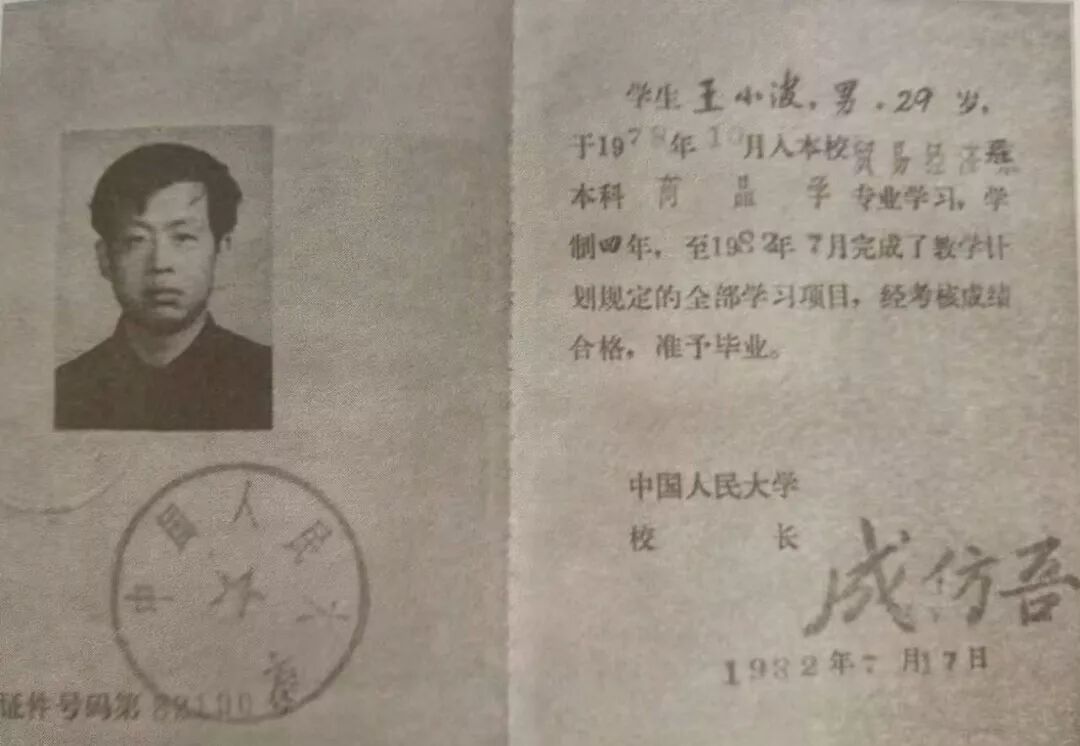 学生王小波，男，29岁，
于1978年10月入本校贸易经济系
本科商品学专业学习，学
制四年，至1982年7月完成了教学计
划规定的全部学习项目，经考核成绩
合格，准予毕业。
中国人民大学
校长
成仿吾
1982年7月17日
中国人民大学
证件号码第